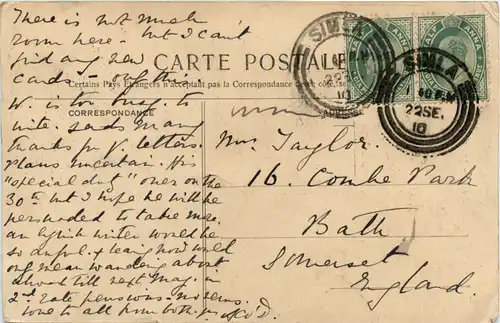 There is not much
room here - but I can't
find any new
cards - of this.
W. is too busy to
write. sends many
thanks for V. letters.
Plans uncertain. His
"special duty" over on the
30th but I hope he will be
persuaded to take me.
an English winter would be
so &
mean wandering about
about till next May. in
2nd rate pensions - no news.
Love to all from both
CARTE POSTALE
Certains Pays Étrangers n'acceptent pas la Correspondance
CORRESPONDANCE
SIMLA
22SE.
10
HALF ANNA
SIMLA
22SE.
10
Mrs Taylor.
16. Combe Park
Bath
Somerset
England.